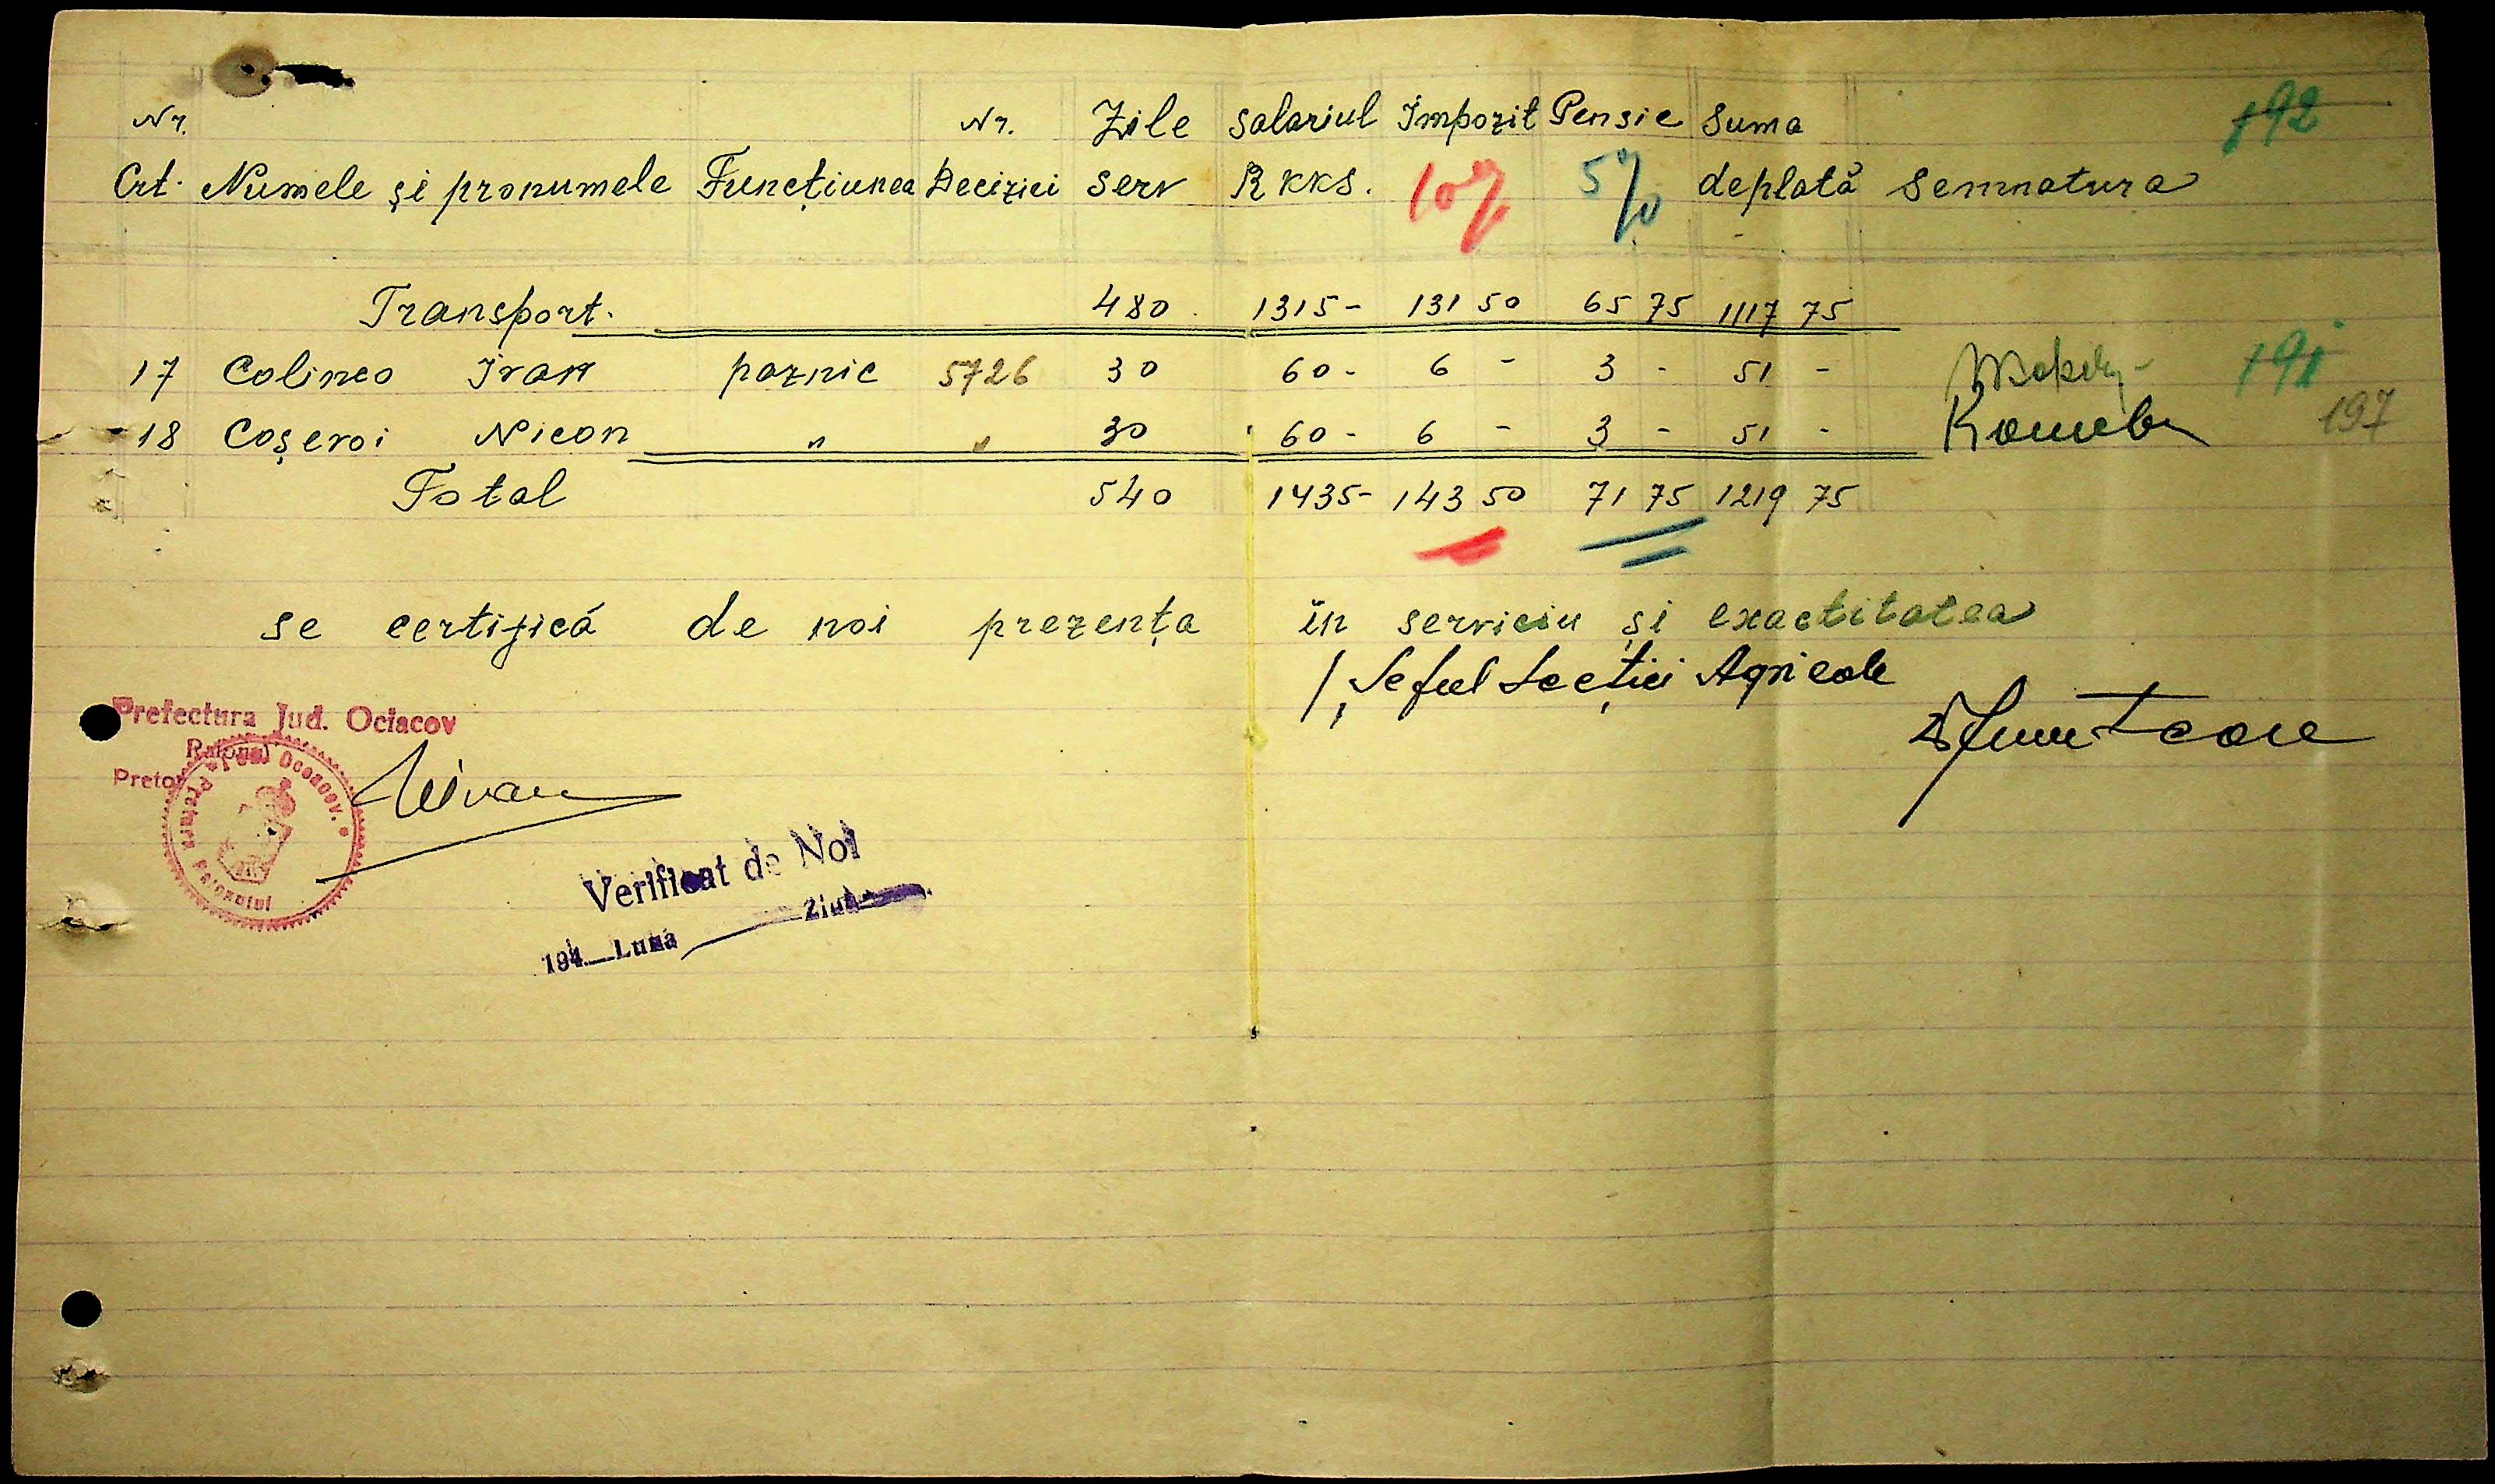 192
Nr. Nr. Zile Salariul Impozit Pensie Suma
Crt. Numele și pronumele Funcțiunea Deciziei serv R KKS. 10% 5% deplată Semnatura
Transport. 480 1315- 131 50 65 75 1117 75
17 Colinco Ivan paznic 5726 30 60- 6 - 3 - 51 - 191
18 Coșevoi Nicon " " 30 60- 6 - 3 - 51 - 197
Total 540 1435- 143 50 71 75 1219 75
se certifică de noi prezența în serviciu și exactitatea
/ Șeful Secției Agricole
Prefectura Jud. Ociacov
Raional
Pretor
Pretura Raionului
Verificat de Noi
194_ Luna Ziua